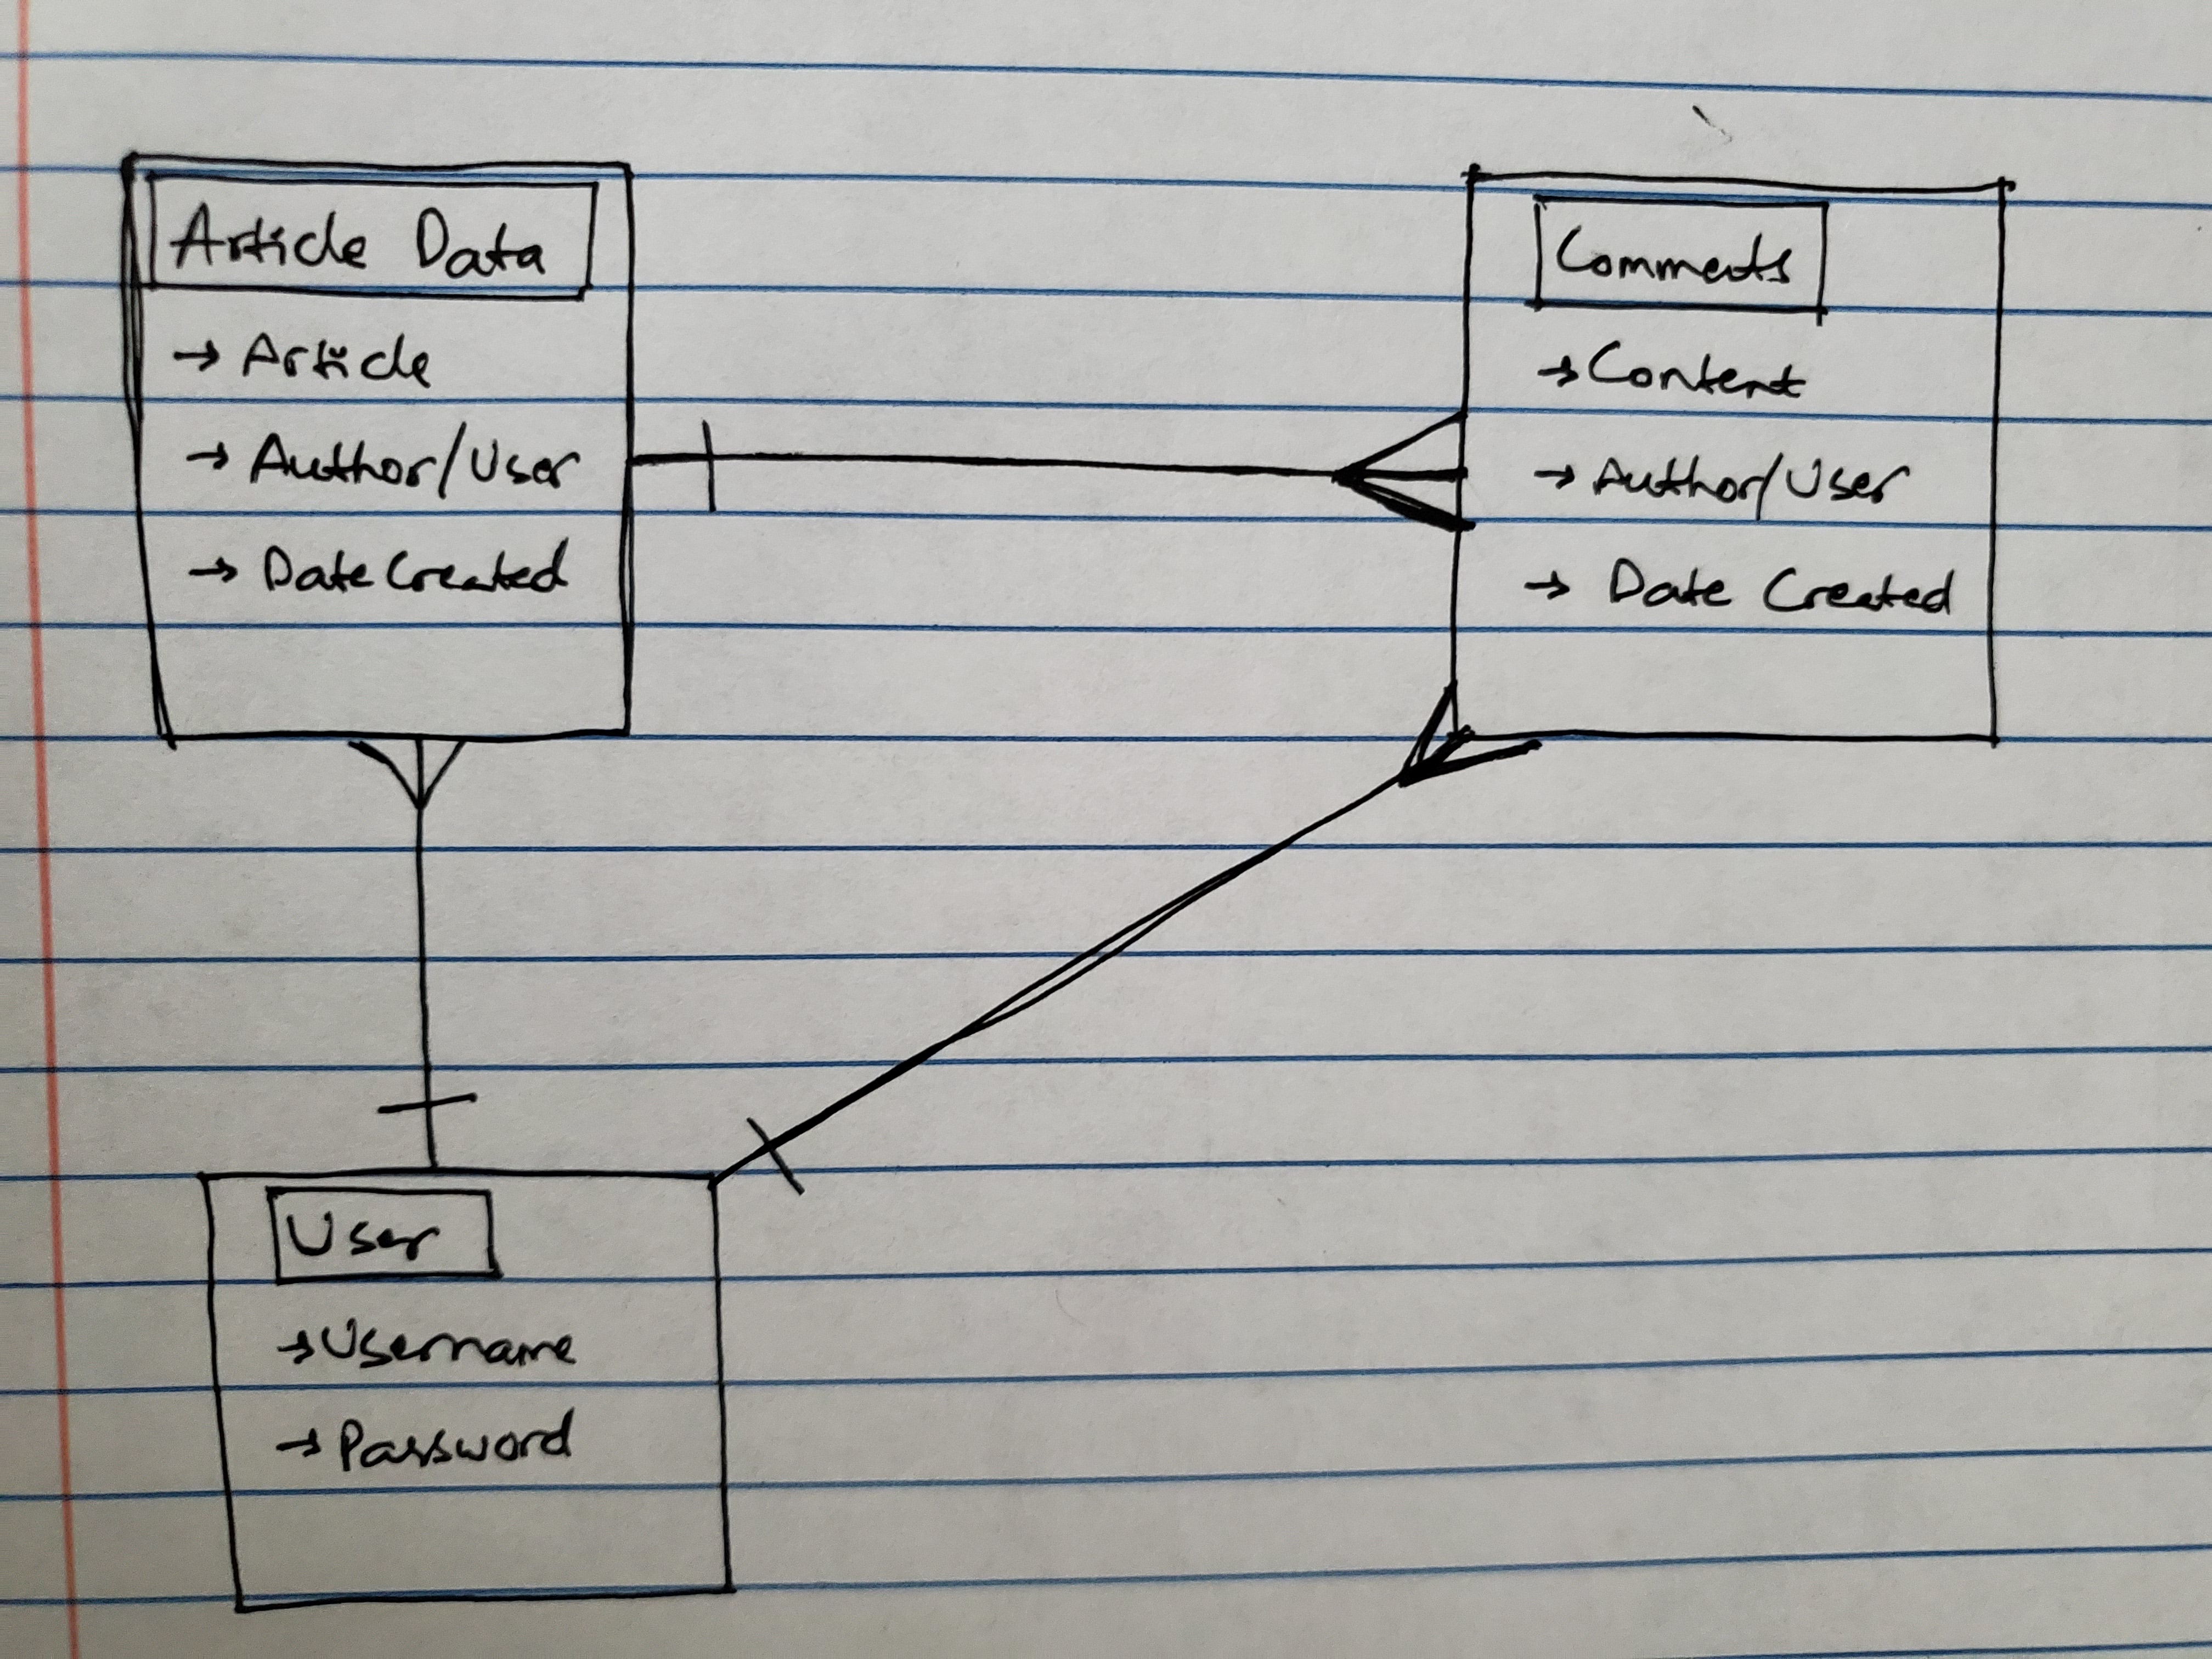 Article Data
→ Article
→ Author/User
→ DateCreated
Comments
→ Content
→ Author/User
→ Date Created
User
→ Username
→ Password